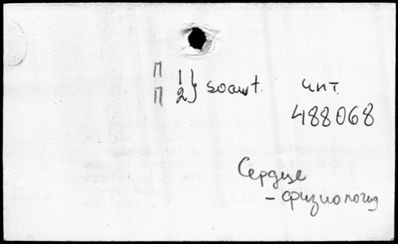 П 1 } soawt. чит.
П 2
488068
Сердце
- физиология